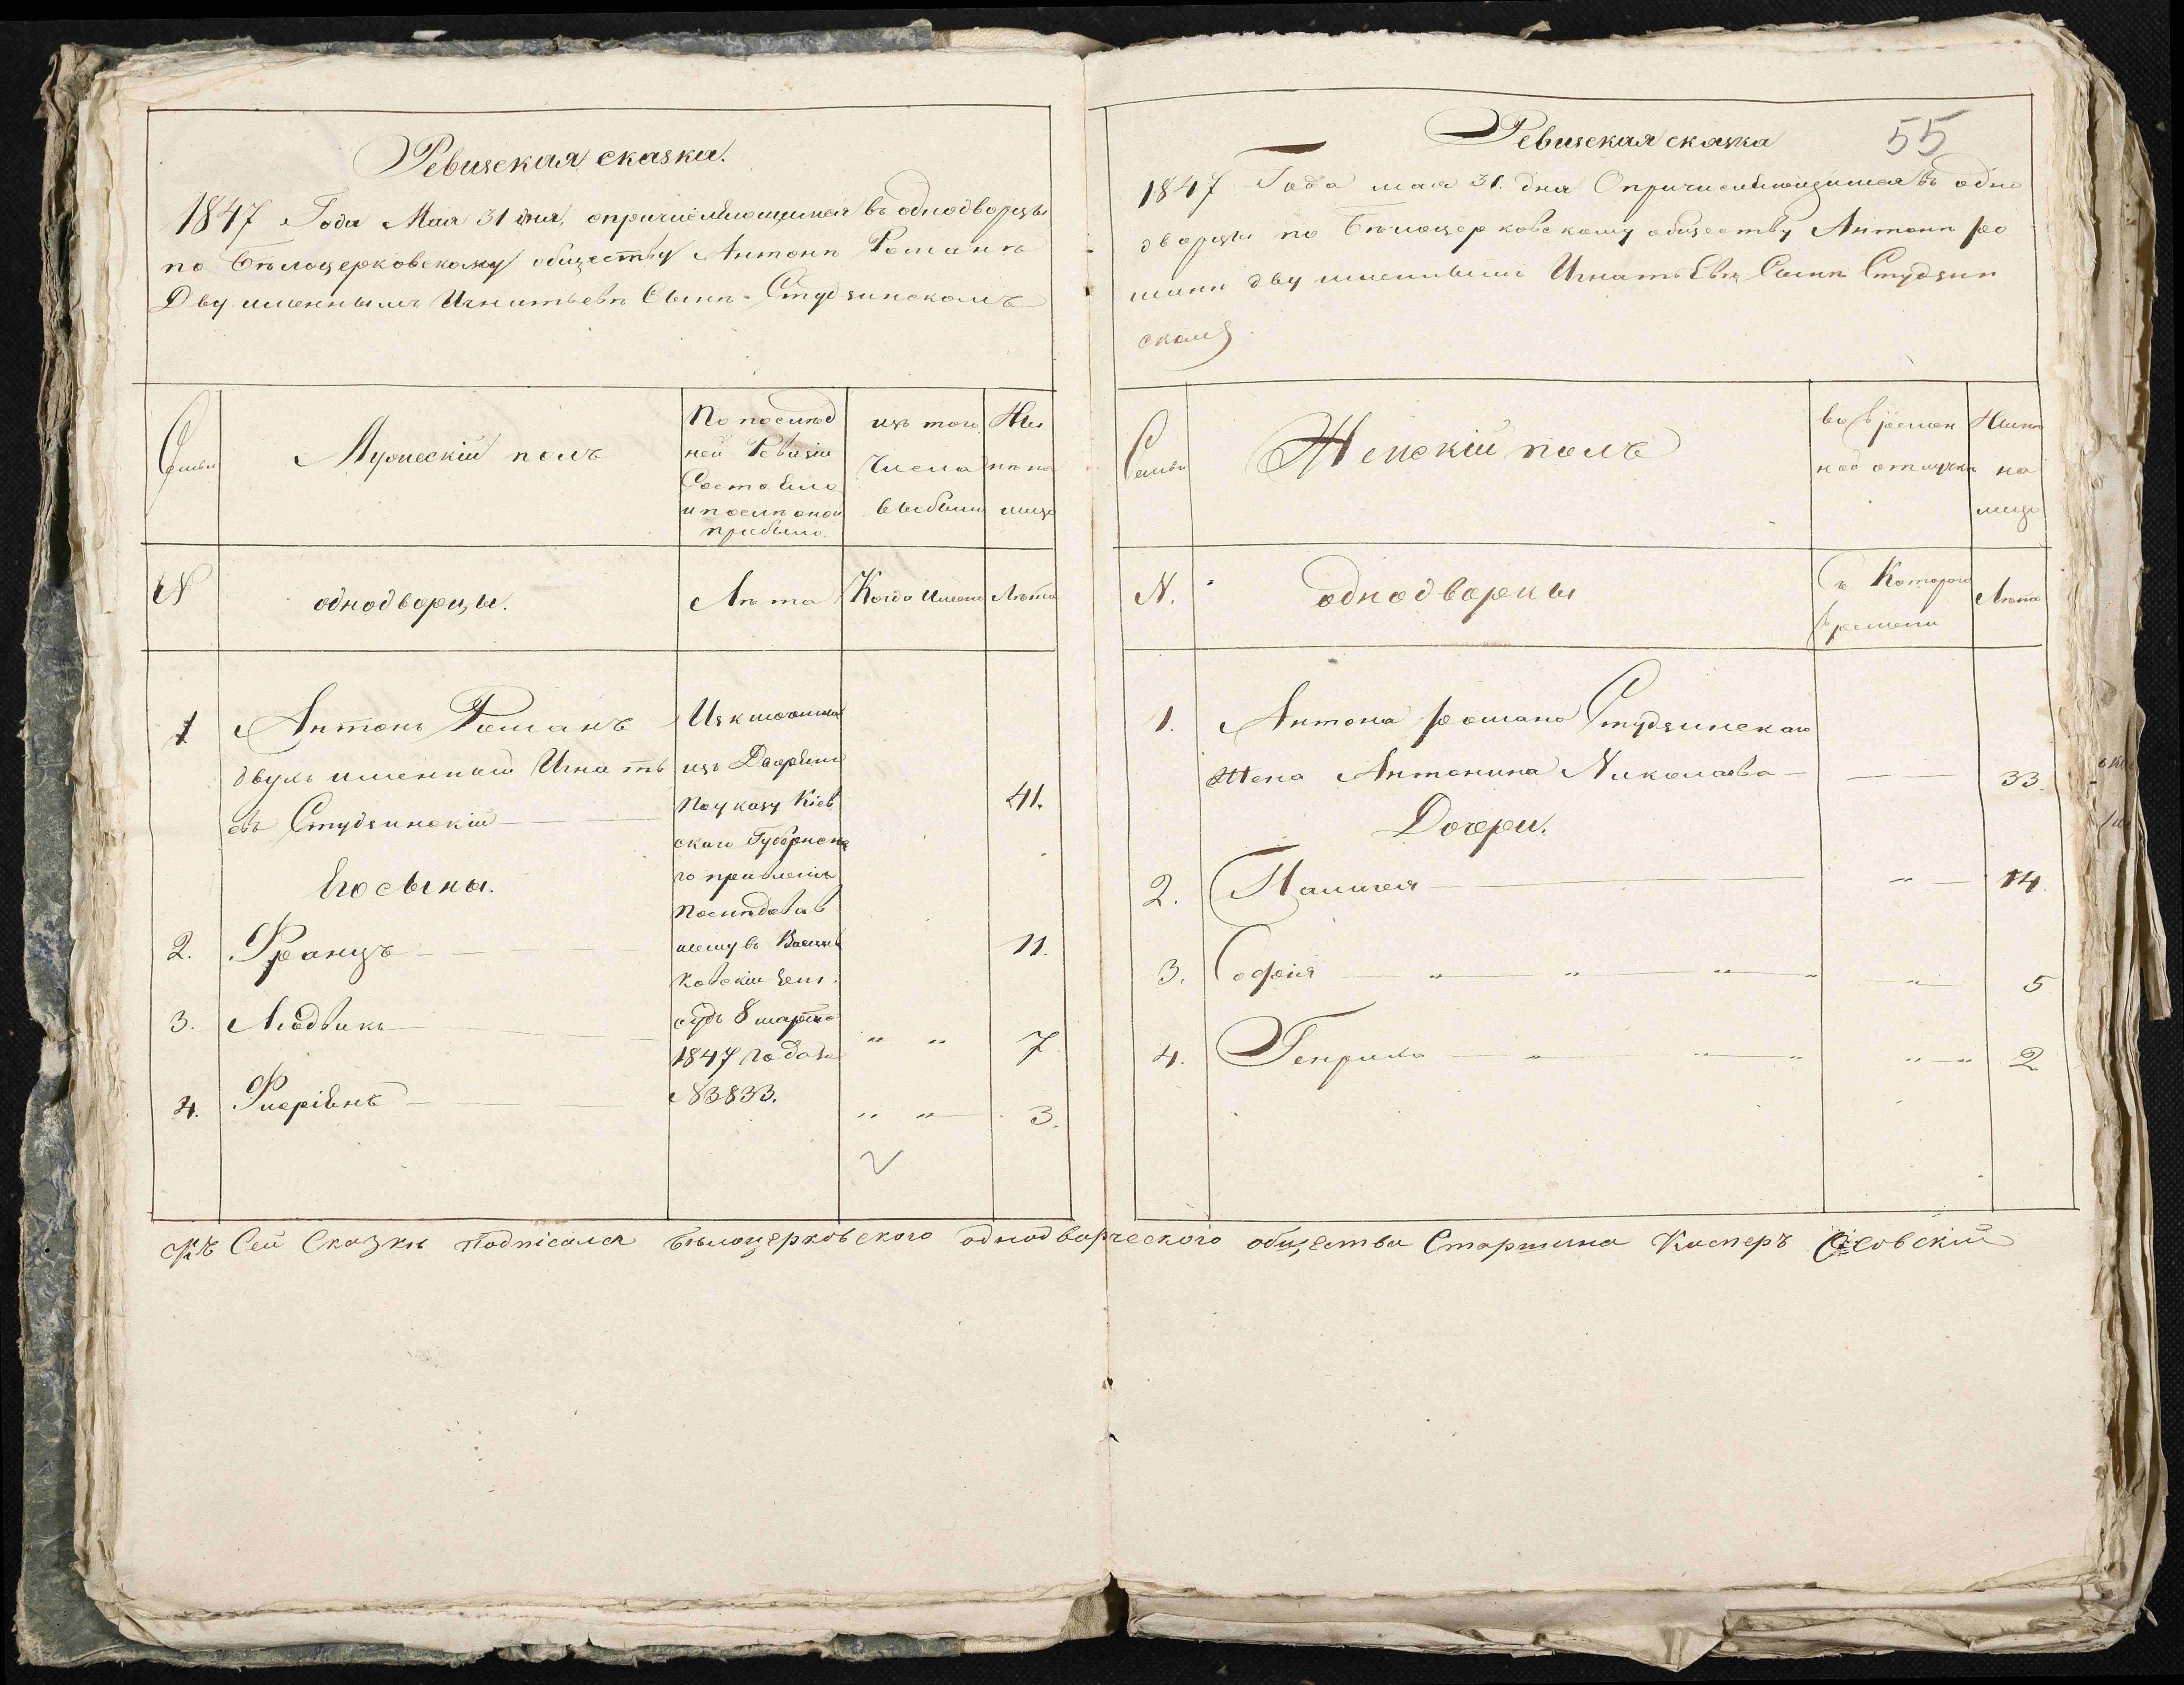 Ревизская сказка.
1847 Года Мая 31 дня, опричисляющимся въ однодворцы
по Бѣлоцерковскому обществу Антонѣ Романѣ
Двуименнымъ Игнатьевѣ Сынѣ Студзинскомъ
Семьи
Мужескій полъ
По послѣд
ней Ревизіи
Состояло
и послѣ оной
прибыло.
изъ того
числа
выбыли
Ны
нѣ на
лицо
N
однодворцы.
Лѣта
Когда имено
Лѣта
1
Антонъ Романъ
двухъ именный Игнать
евъ Студзинскій
41.
Его сыны.
2. Францъ 11.
3. Людвикъ " " 7.
4. Флоріянъ " " 3.
Изключенная
изъ Дворянъ
По указу Кіев
ского Губернска
го правленія
Послѣдовав
шему въ Васильк
ковскій зем.
судъ 8 марта
1847 года за
N 3833.
55
Ревизская сказка
1847 Года мая 31. дня Опричисляющимся въ одно
дворцы по Бѣлоцерковскому обществу Антонѣ Ро
манѣ двуименнымъ Игнатьевѣ Сынѣ Студзин
скомъ
Семьи
Женскій полъ
во времен
ной отлучкѣ
Нынѣ
на
лицо
N.
однодворки
съ Котораго
времени
Лѣта
1. Антона Романа Студзинскаго
жена Антонина Николаева 33.
Дочери.
2. Пашлея " 14.
3. Софія " " " " " 5
4. Генрика " " " " " 2
Къ Сей Сказки подпісался бѣлоцерковского однодворческого общества Старшина Касперъ Осовскій